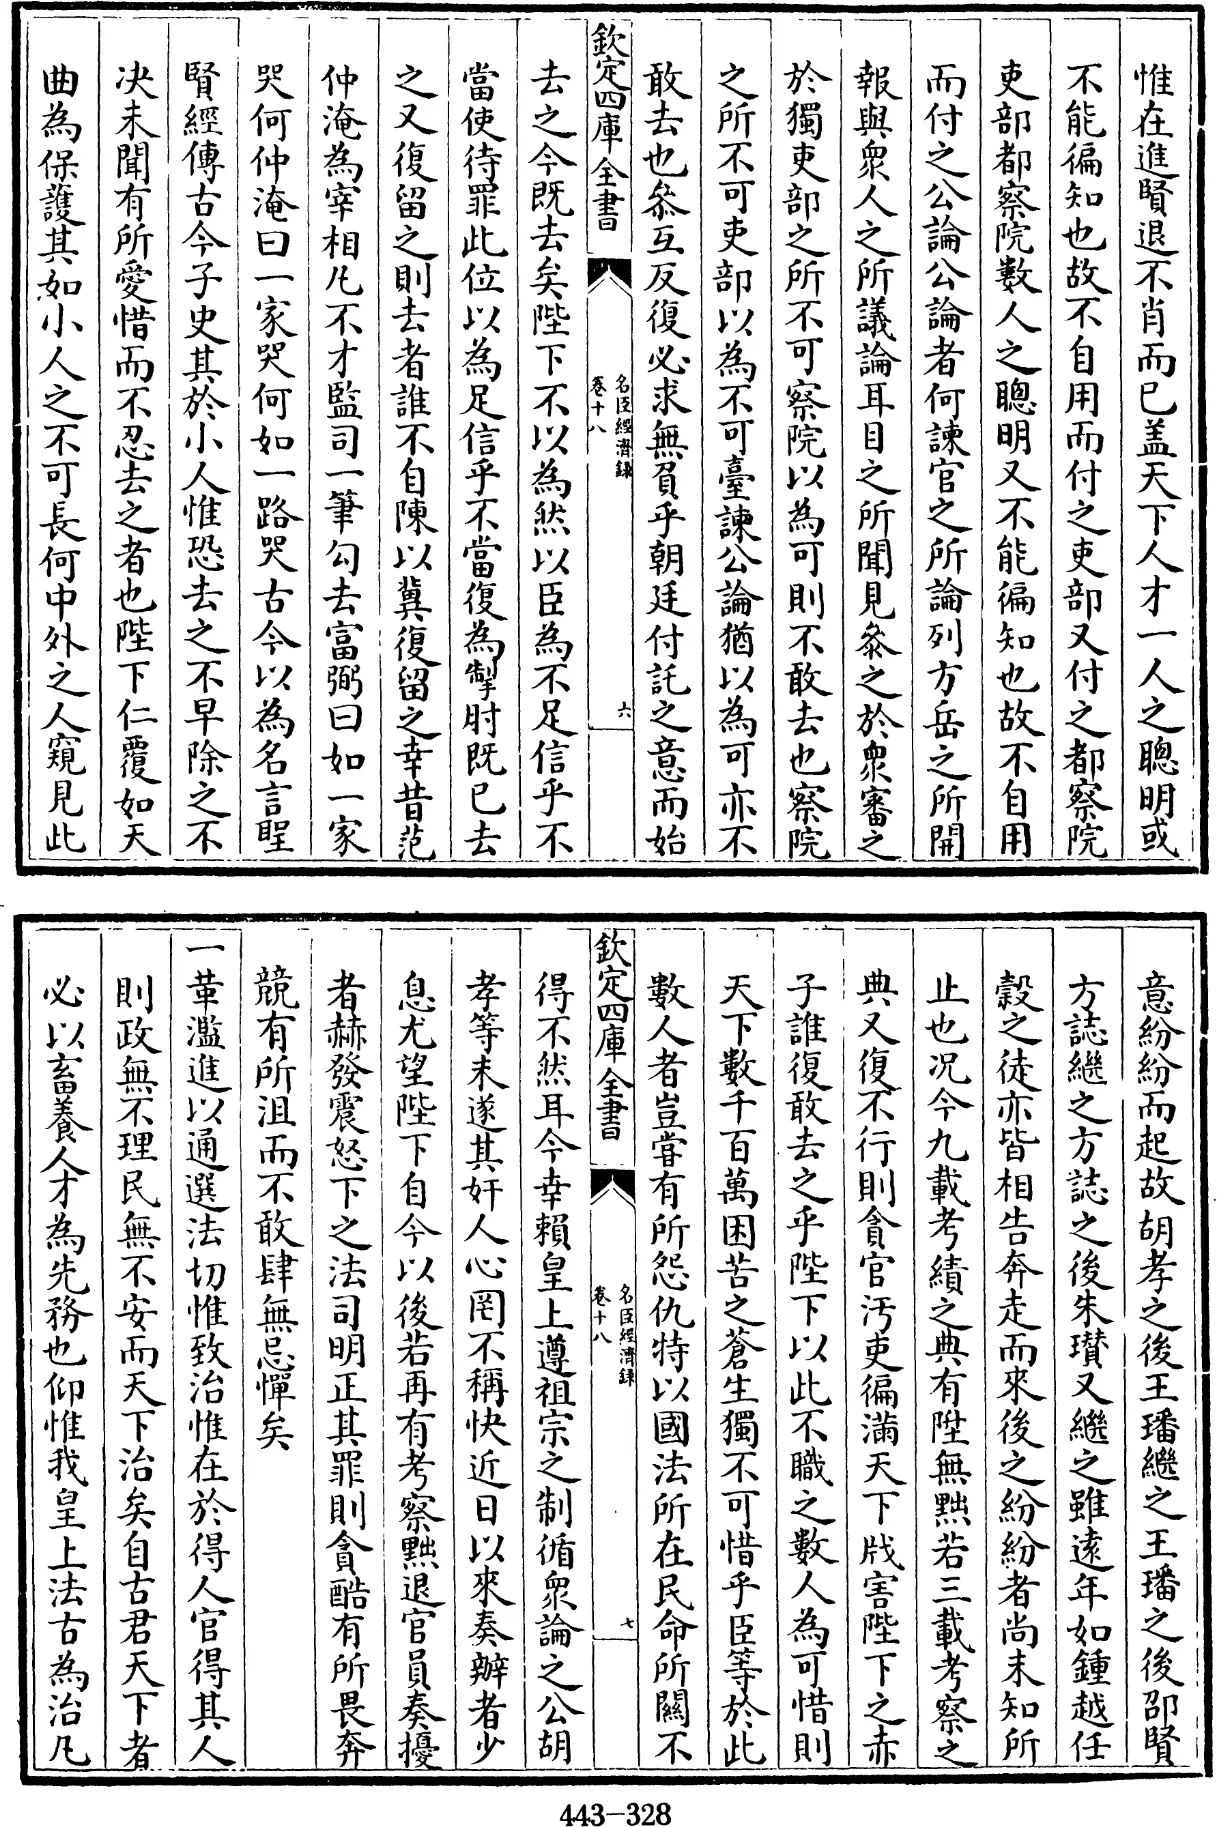 惟在進賢退不肖而已盖天下人才一人之聰明或
不能徧知也故不自用而付之吏部又付之都察院
吏部都察院數人之聰明又不能徧知也故不自用
而付之公論公論者何諫官之所論列方岳之所開
報與衆人之所議論耳目之所聞見叅之於衆審之
於獨吏部之所不可察院以為可則不敢去也察院
之所不可吏部以為不可臺諫公論猶以為可亦不
敢去也叅互反復必求無負乎朝廷付託之意而始
欽定四庫全書
名臣經濟録
卷十八
六
去之今既去矣陛下不以為然以臣為不足信乎不
當使待罪此位以為足信乎不當復為掣肘既已去
之又復留之則去者誰不自陳以冀復留之幸昔范
仲淹為宰相凡不才監司一筆勾去富弼曰如一家
哭何仲淹曰一家哭何如一路哭古今以為名言聖
賢經傳古今子史其於小人惟恐去之不早除之不
决未聞有所愛惜而不忍去之者也陛下仁覆如天
曲為保護其如小人之不可長何中外之人窺見此
意紛紛而起故胡孝之後王璠繼之王璠之後邵賢
方誌繼之方誌之後朱瓚又繼之雖遠年如鍾越任
穀之徒亦皆相告奔走而來後之紛紛者尚未知所
止也况今九載考績之典有陞無黜若三載考察之
典又復不行則貪官汚吏徧滿天下戕害陛下之赤
子誰復敢去之乎陛下以此不職之數人為可惜則
天下數千百萬困苦之蒼生獨不可惜乎臣等於此
數人者豈甞有所怨仇特以國法所在民命所關不
欽定四庫全書
名臣經濟録
卷十八
七
得不然耳今幸賴皇上遵祖宗之制循衆論之公胡
孝等未遂其奸人心罔不稱快近日以來奏辦者少
息尤望陛下自今以後若再有考察黜退官員奏擾
者赫發震怒下之法司明正其罪則貪酷有所畏奔
競有所沮而不敢肆無忌憚矣
一革濫進以通選法切惟致治惟在於得人官得其人
則政無不理民無不安而天下治矣自古君天下者
必以畜養人才為先務也仰惟我皇上法古為治凡
443-328